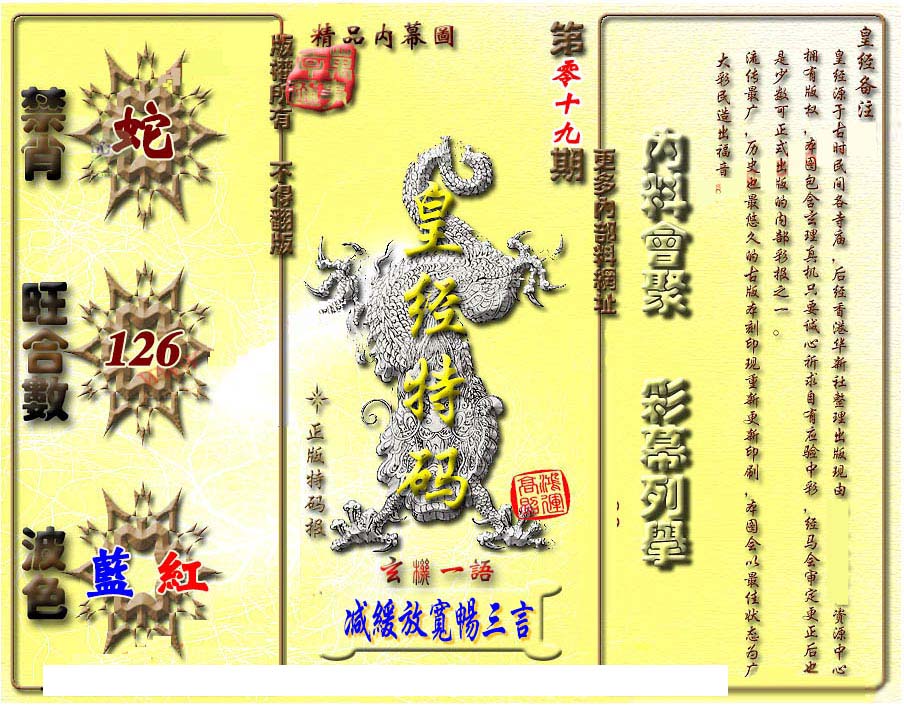 精品内幕圖
第零十九期
版權所有 不得翻版
更多內部料網址
禁肖
蛇
旺合數
126
波色
藍 紅
皇经特码
正版特码报
鴻運高照
玄機一語
减緩放寬暢三言
內料會聚 彩幕列舉
皇经备注
皇经源于古时民间各寺庙,后经香港华新社整理出版现由 资源中心
拥有版权,本图包含玄理真机只要诚心祈求自有应验中彩,经马会审定更正后也
是少数可正式出版的内部彩报之一。
流传最广,历史也最悠久的古版本刻印现重新更新印刷,本图会以最佳状态为广
大彩民造出福音